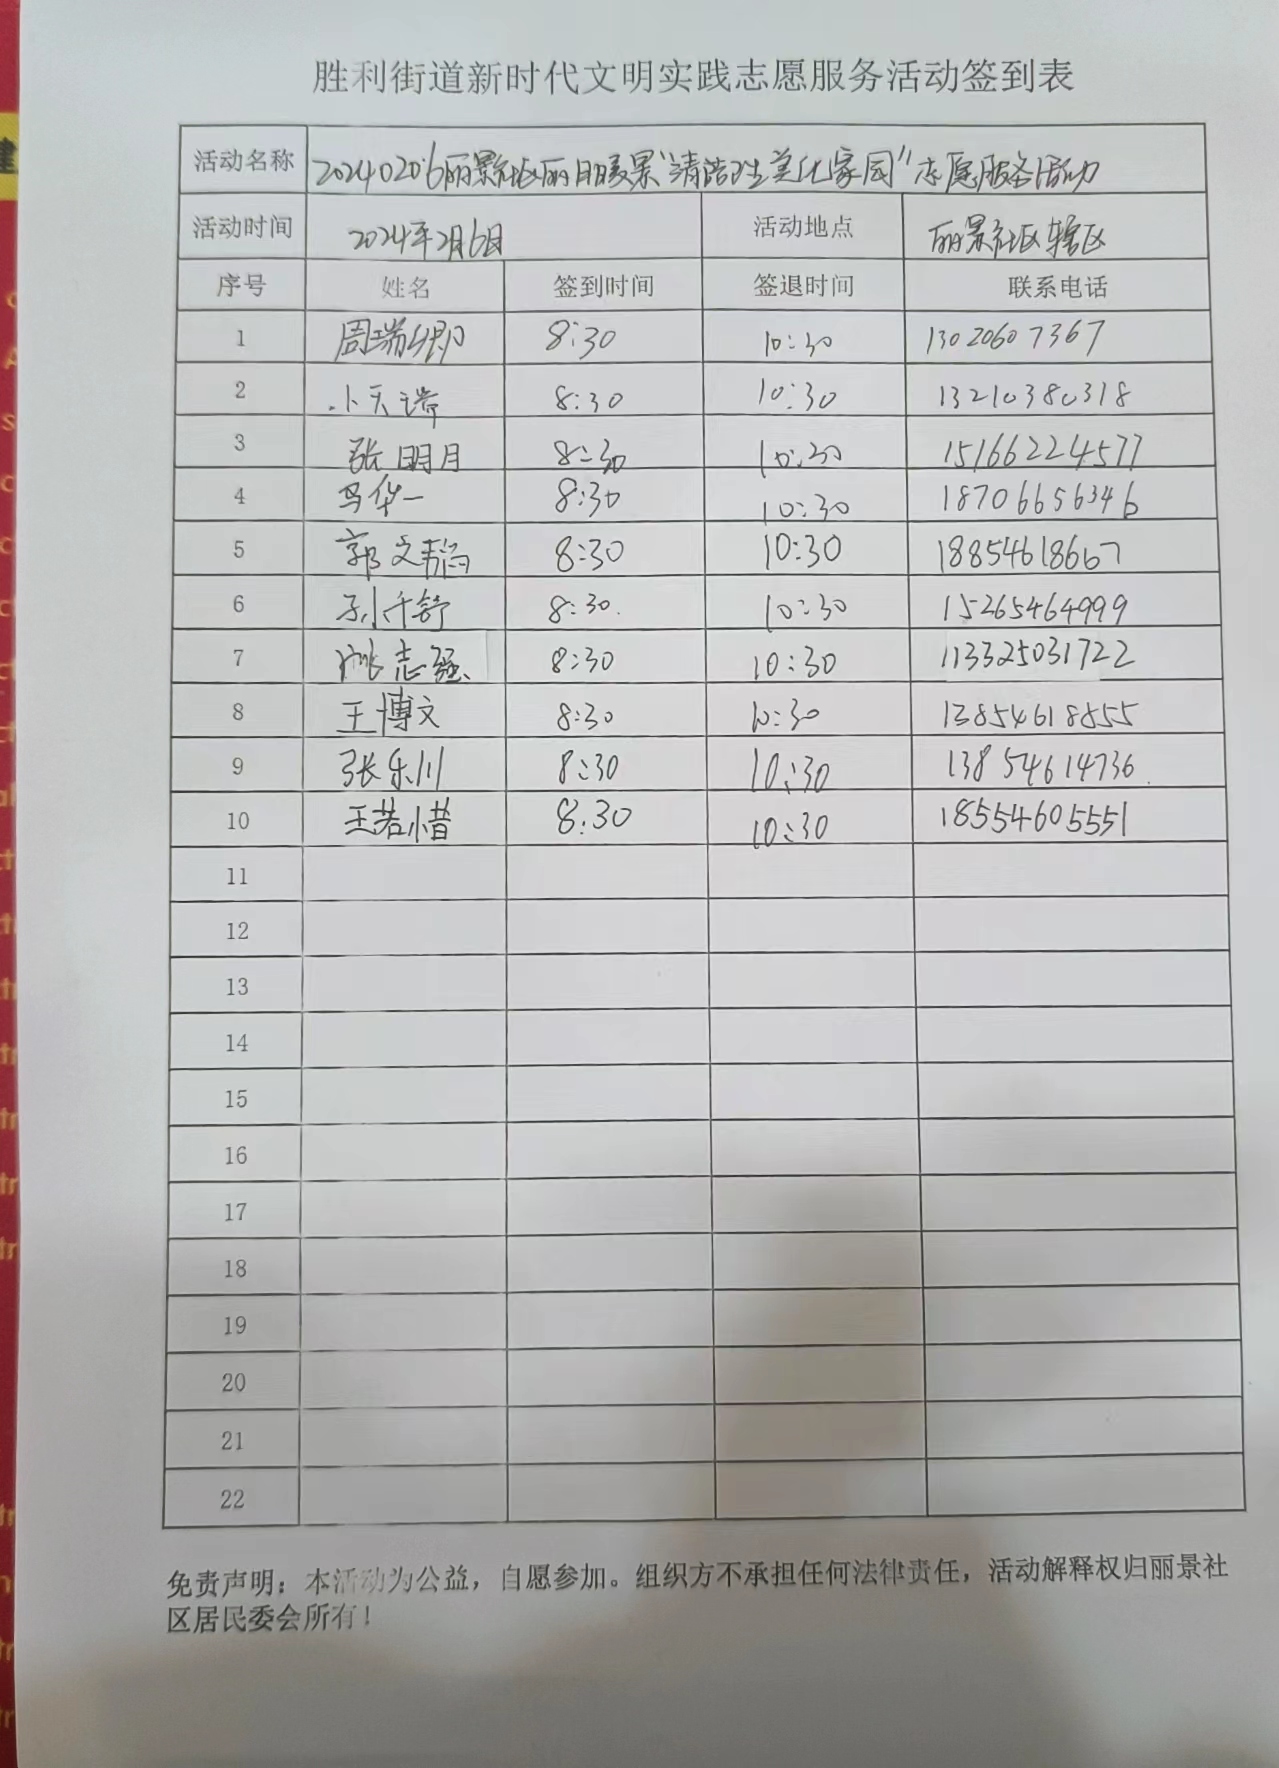 胜利街道新时代文明实践志愿服务活动签到表
活动名称 20240206丽景社区丽日暖景"清洁卫生美化家园"志愿服务活动
活动时间 2024年2月6日 活动地点 丽景社区辖区
序号 姓名 签到时间 签退时间 联系电话
1 周瑞卿 8:30 10:30 13020607367
2 卜天瑞 8:30 10:30 13210380318
3 张明月 8:30 10:30 15166224577
4 马华一 8:30 10:30 18706656346
5 郭文韬 8:30 10:30 18854618667
6 孙千舒 8:30. 10:30 15265464999
7 志强 8:30 10:30 113325031722
8 王博文 8:30 10:30 13854618855
9 张乐川 8:30 10:30 13854614736
10 王若惜 8:30 10:30 18554605551
11
12
13
14
15
16
17
18
19
20
21
22
免责声明：本活动为公益，自愿参加。组织方不承担任何法律责任，活动解释权归丽景社
区居民委会所有！